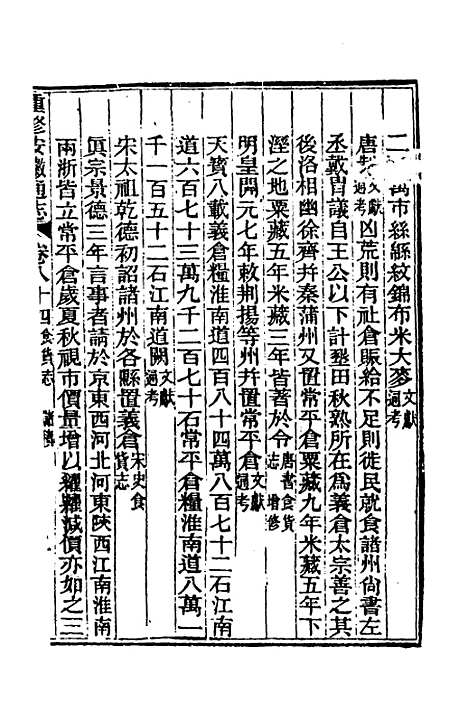 二 萬市絲緜紋錦布米大麥文獻通考
唐制文獻通考凶荒則有社倉賑給不足則徙民就食諸州尙書左
丞戴胄議自王公以下計墾田秋熟所在爲義倉太宗善之其
後洛相幽徐齊并秦蒲州又置常平倉粟藏九年米藏五年下
溼之地粟藏五年米藏三年皆著於令唐書食貨志增修
明皇開元七年敕荆揚等州并置常平倉文獻通考
天寳八載義倉糧淮南道四百八十四萬八百七十二石江南
道六百七十三萬九千二百七十石常平倉糧淮南道八萬一
千一百五十二石江南道闕文獻通考
宋太祖乾德初詔諸州於各縣置義倉宋史食貨志
眞宗景德三年言事者請於京東西河北河東陜西江南淮南
兩浙皆立常平倉歲夏秋視市價量增以糴糶減價亦如之三
重修安徽通志 卷八十四食貨志 諸